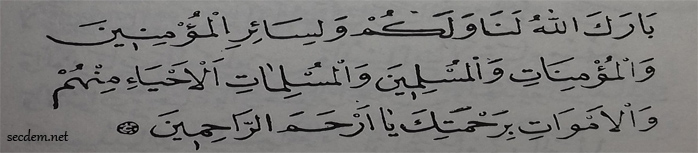 بَارَكَ اللّٰهُ لَنَا وَلَكُمْ وَلِسَائِرِ الْمُؤْمِنِينَ
وَالْمُؤْمِنَاتِ وَالْمُسْلِمِينَ وَالْمُسْلِمَاتِ اَلْاَحْيَاءِ مِنْهُمْ
وَالْاَمْوَاتِ بِرَحْمَتِكَ يَا اَرْحَمَ الرَّاحِمِينَ
secdem.net